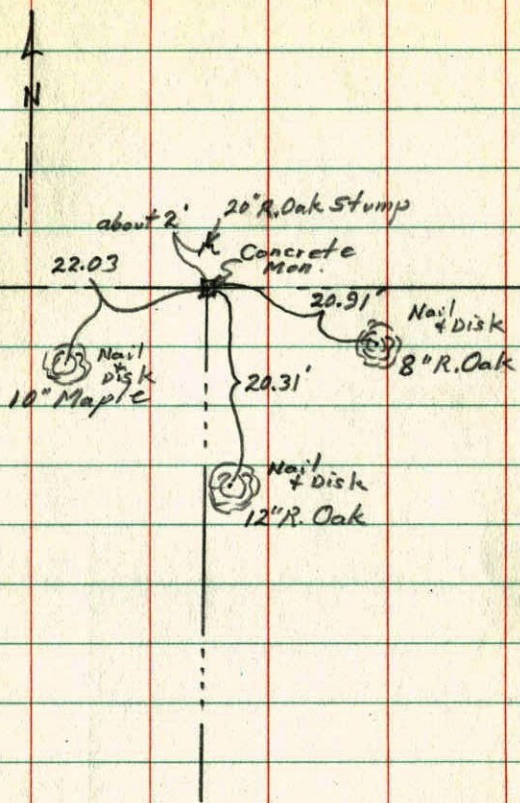 N
20" R. Oak Stump
about 2'
Concrete
Mon.
22.03
20.91'
Nail
& Disk
8" R. Oak
Nail
&
Disk
10" Maple
20.31'
Nail
& Disk
12" R. Oak